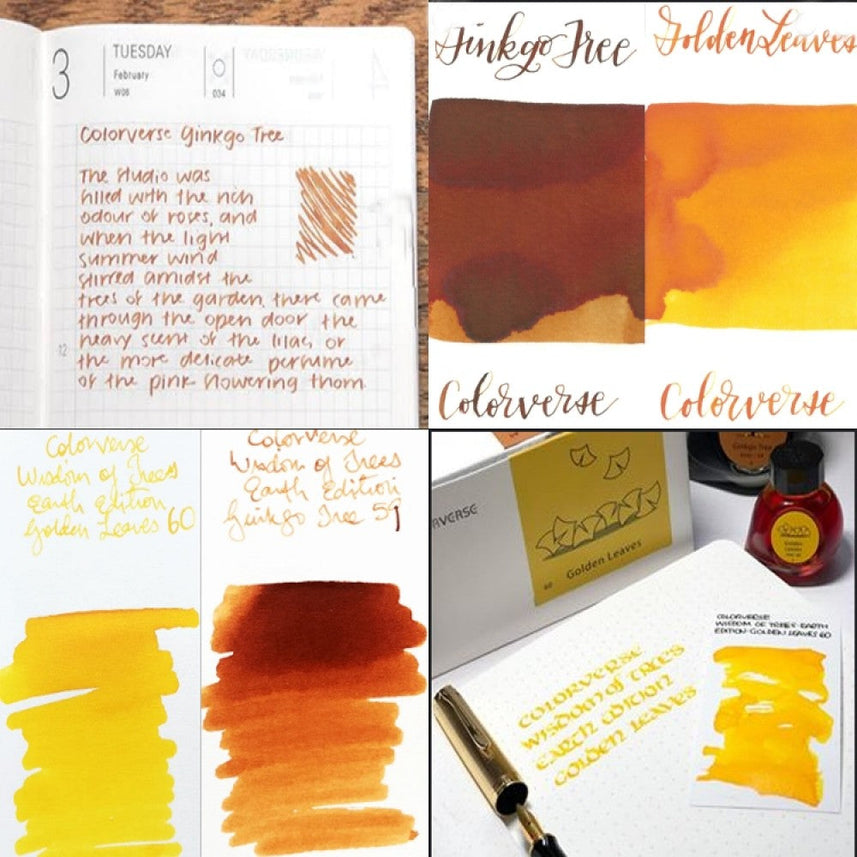 3
TUESDAY
February
W06
034
Colorverse Ginkgo Tree
The studio was
filled with the rich
odour of roses, and
when the light
summer wind
stirred amidst the
trees of the garden, there came
through the open door the
heavy scent of the lilac, or
the more delicate perfume
of the pink-flowering thorn
12
Ginkgo Tree
Golden Leaves
Colorverse
Colorverse
Colorverse
Wisdom of Trees
Earth Edition
Golden Leaves 60
Colorverse
Wisdom of Trees
Earth Edition
Ginkgo Tree 59
RVERSE
60 Golden Leaves
Ginkgo Tree
Golden
Leaves
COLORVERSE
WISDOM OF TREES-EARTH
EDITION-GOLDEN LEAVES 60
COLORVERSE
WISDOM OF TREES
EARTH EDITION
GOLDEN LEAVES